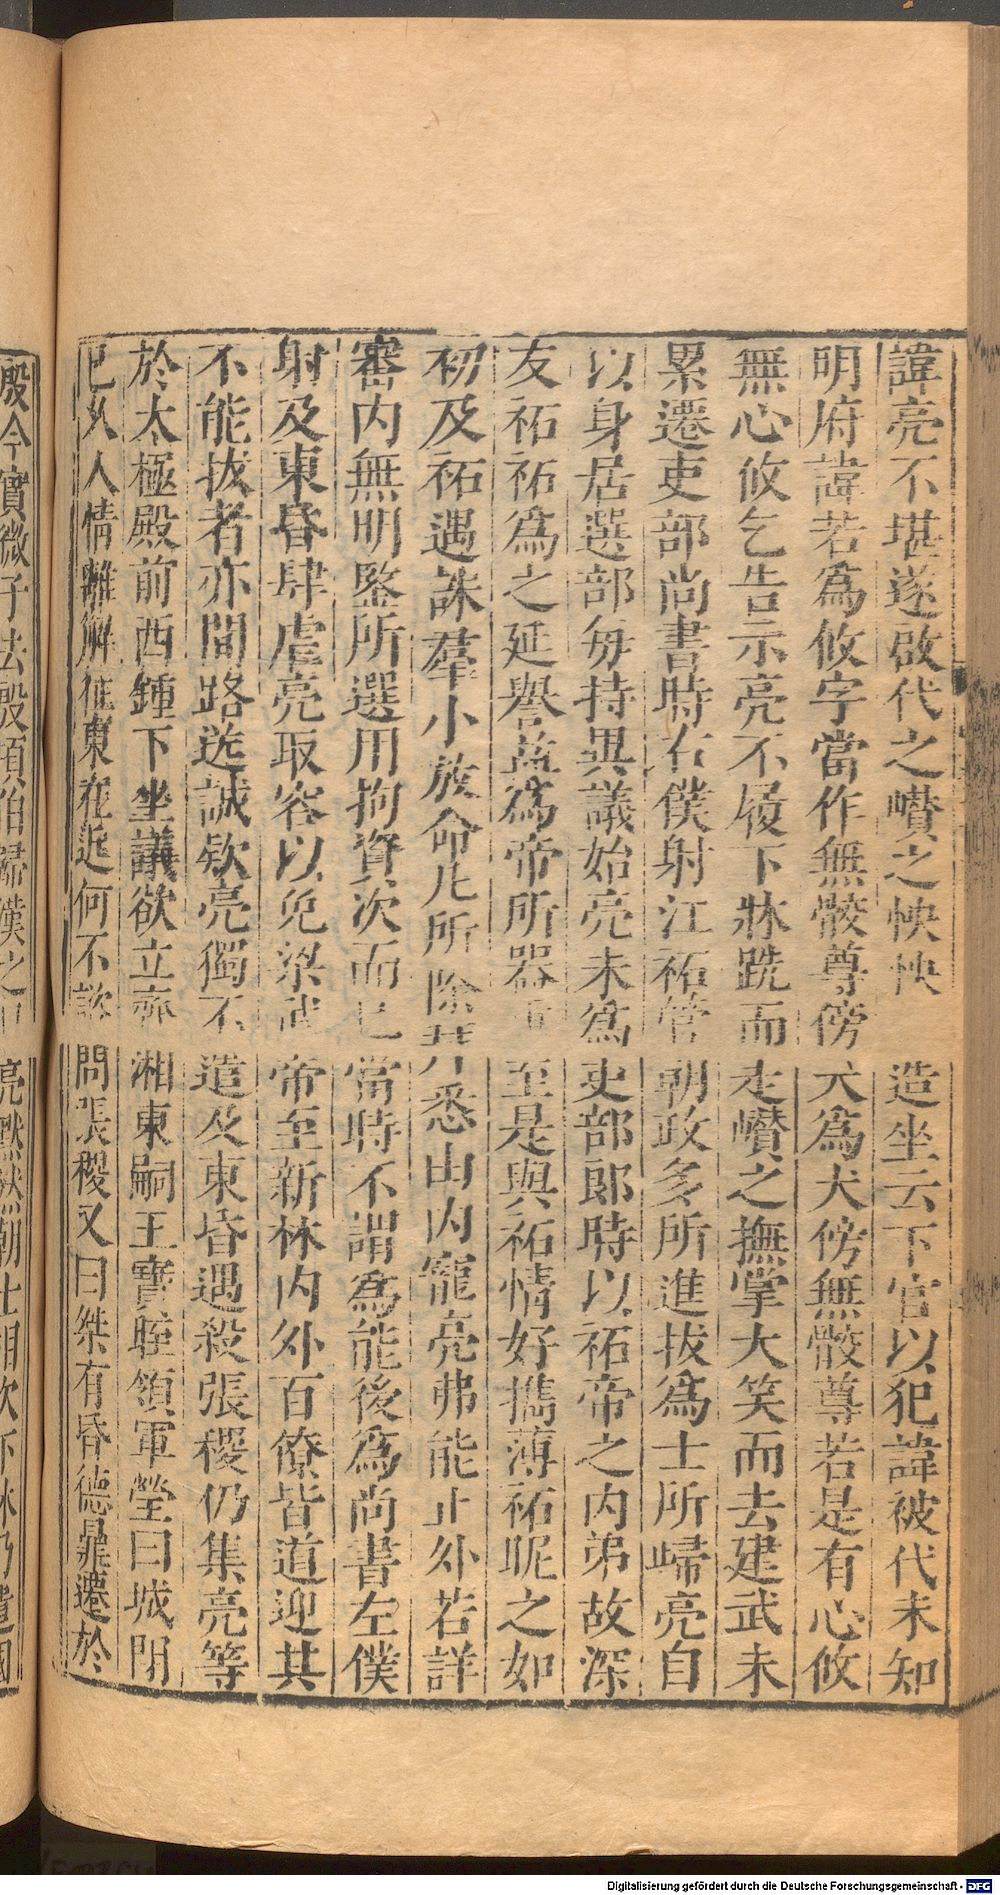 諱亮不堪遂啟代之巑之怏怏造坐云下官以犯諱被代未知
明府諱若爲攸字當作無骹尊傍犬爲犬傍無骹尊若是有心攸
無心攸乞告示亮不履下牀跣而走巑之撫掌大笑而去建武末
累遷吏部尚書時右僕射江祏管朝政多所進拔爲士所歸亮自
以身居選部每持異議始亮未爲吏部郎時以祏帝之内弟故深
友祏祏爲之延譽益爲帝所器重至是與祏情好攜薄祏昵之如
初及祏遇誅羣小放命凡所除拜悉由内寵亮弗能止外若詳
審内無明鑒所選用拘資次而已當時不謂爲能後爲尚書左僕
射及東昏肆虐亮取容以免梁武帝至新林内外百僚皆道迎其
不能拔者亦間路送誠欵亮獨不遣及東昏遇殺張稷仍集亮等
於太極殿前西鍾下坐議欲立齊湘東嗣王寶晊領軍瑩曰城閉
已久人情離解征東在近何不諮問張稷又曰桀有昏德鼎遷於
殷今實微子去殷項伯歸漢之日亮默然朝士相次下牀乃遣國
Digitalisierung gefördert durch die Deutsche Forschungsgemeinschaft - DFG